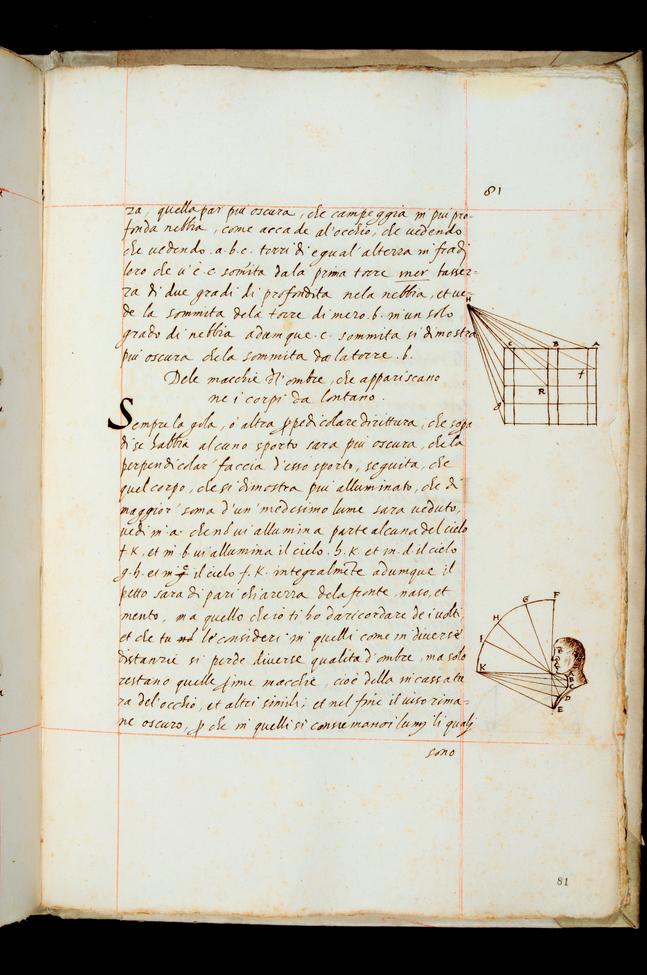 81
za, quella par piu oscura, che campeggia in piu pro-
fonda nebbia, come accade al'occhio, che vedendo
che vedendo .a.b.c. torri di egual' alterza in fradi
loro che v'è .c somita dala prima torre iner basser-
za di due gradi di profondita nela nebbia, et ve-
de la sommita dela torre di mezo .b. in un solo
grado di nebbia adunque .c. sommita si dimostra
piu oscura chela sommita dela torre .b.
Dele macchie d'l'ombre, che appariscano
ne i corpi da lontano.
Sempre la gola, ò altra ppedicolare dirittura, che sopa
di se habbia alcuno sporto sara piu oscura, che la
perpendicolar' faccia d'esso sporto, seguita, che
quel corpo, che si dimostra piu alluminato, che di
maggior' soma d'un medesimo lume sara veduto,
vedi in .a. che nō vi allumina parte alcuna del cielo
f.K. et in .b vi allumina il cielo .h.K. et in .d il cielo
g.h. et in il cielo f.K. integralmēte adumque il
petto sara di pari chiarezza dela fronte, naso, et
mento, ma quello che io ti ho da ricordare de i volti,
et che tu le consideri in quelli come in diverse
distanzie si perde diverse qualita d'ombre, ma solo
restano quelle p̄ime macchie, cioè della incassatu
ra del'occhio, et altri simili; et nel fine il viso rima-
ne oscuro, p che in quelli si consumano i lumj li qualj
sono
H
C B A
f
R
g
F
G
H
I
K
A
B
C
D
E
81